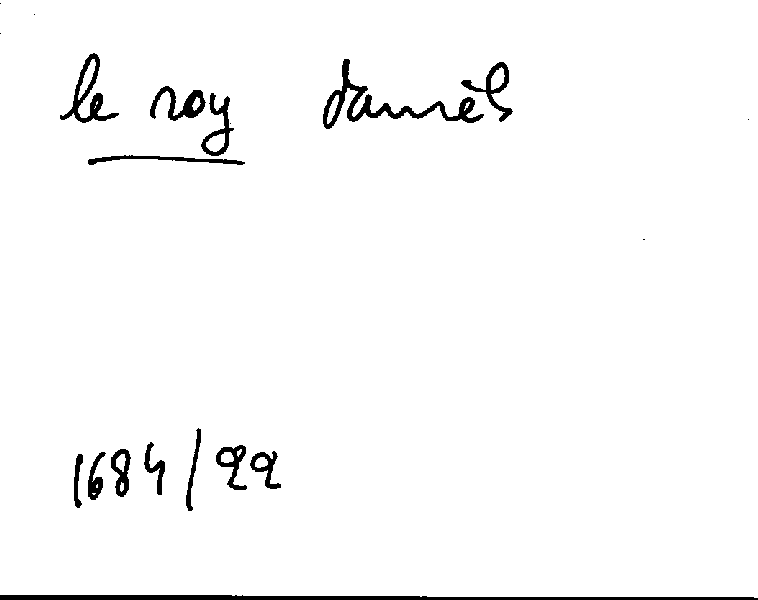 le roy daniel
1684/22